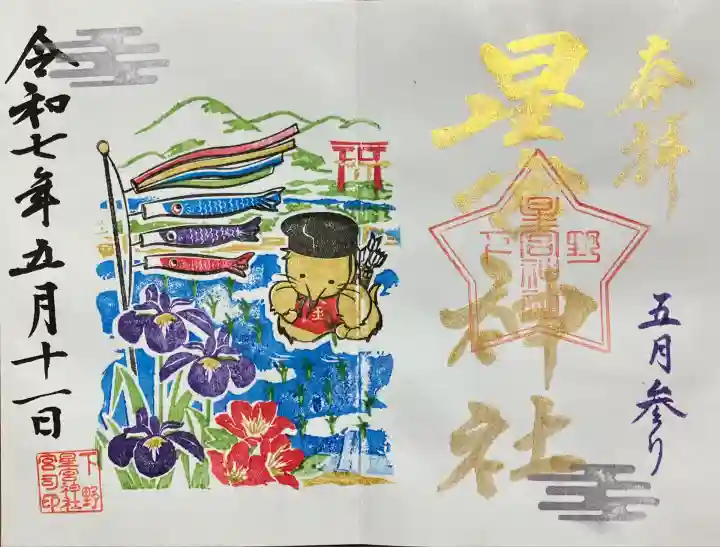 奉拝
星宮神社
下野
星宮神社
五月参り
金
令和七年五月十一日
下野
星宮神社
宮司印